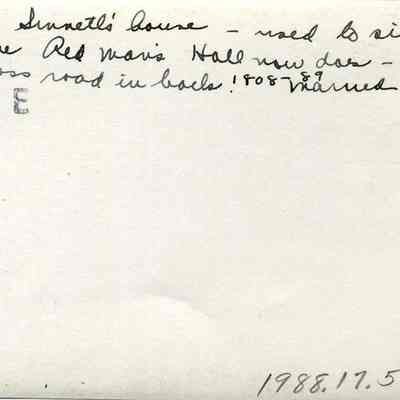 Sinnett's house - used to si
e Red Man's Hall now does -
oss road in back! 1808-89 Married
E
1988.17.5